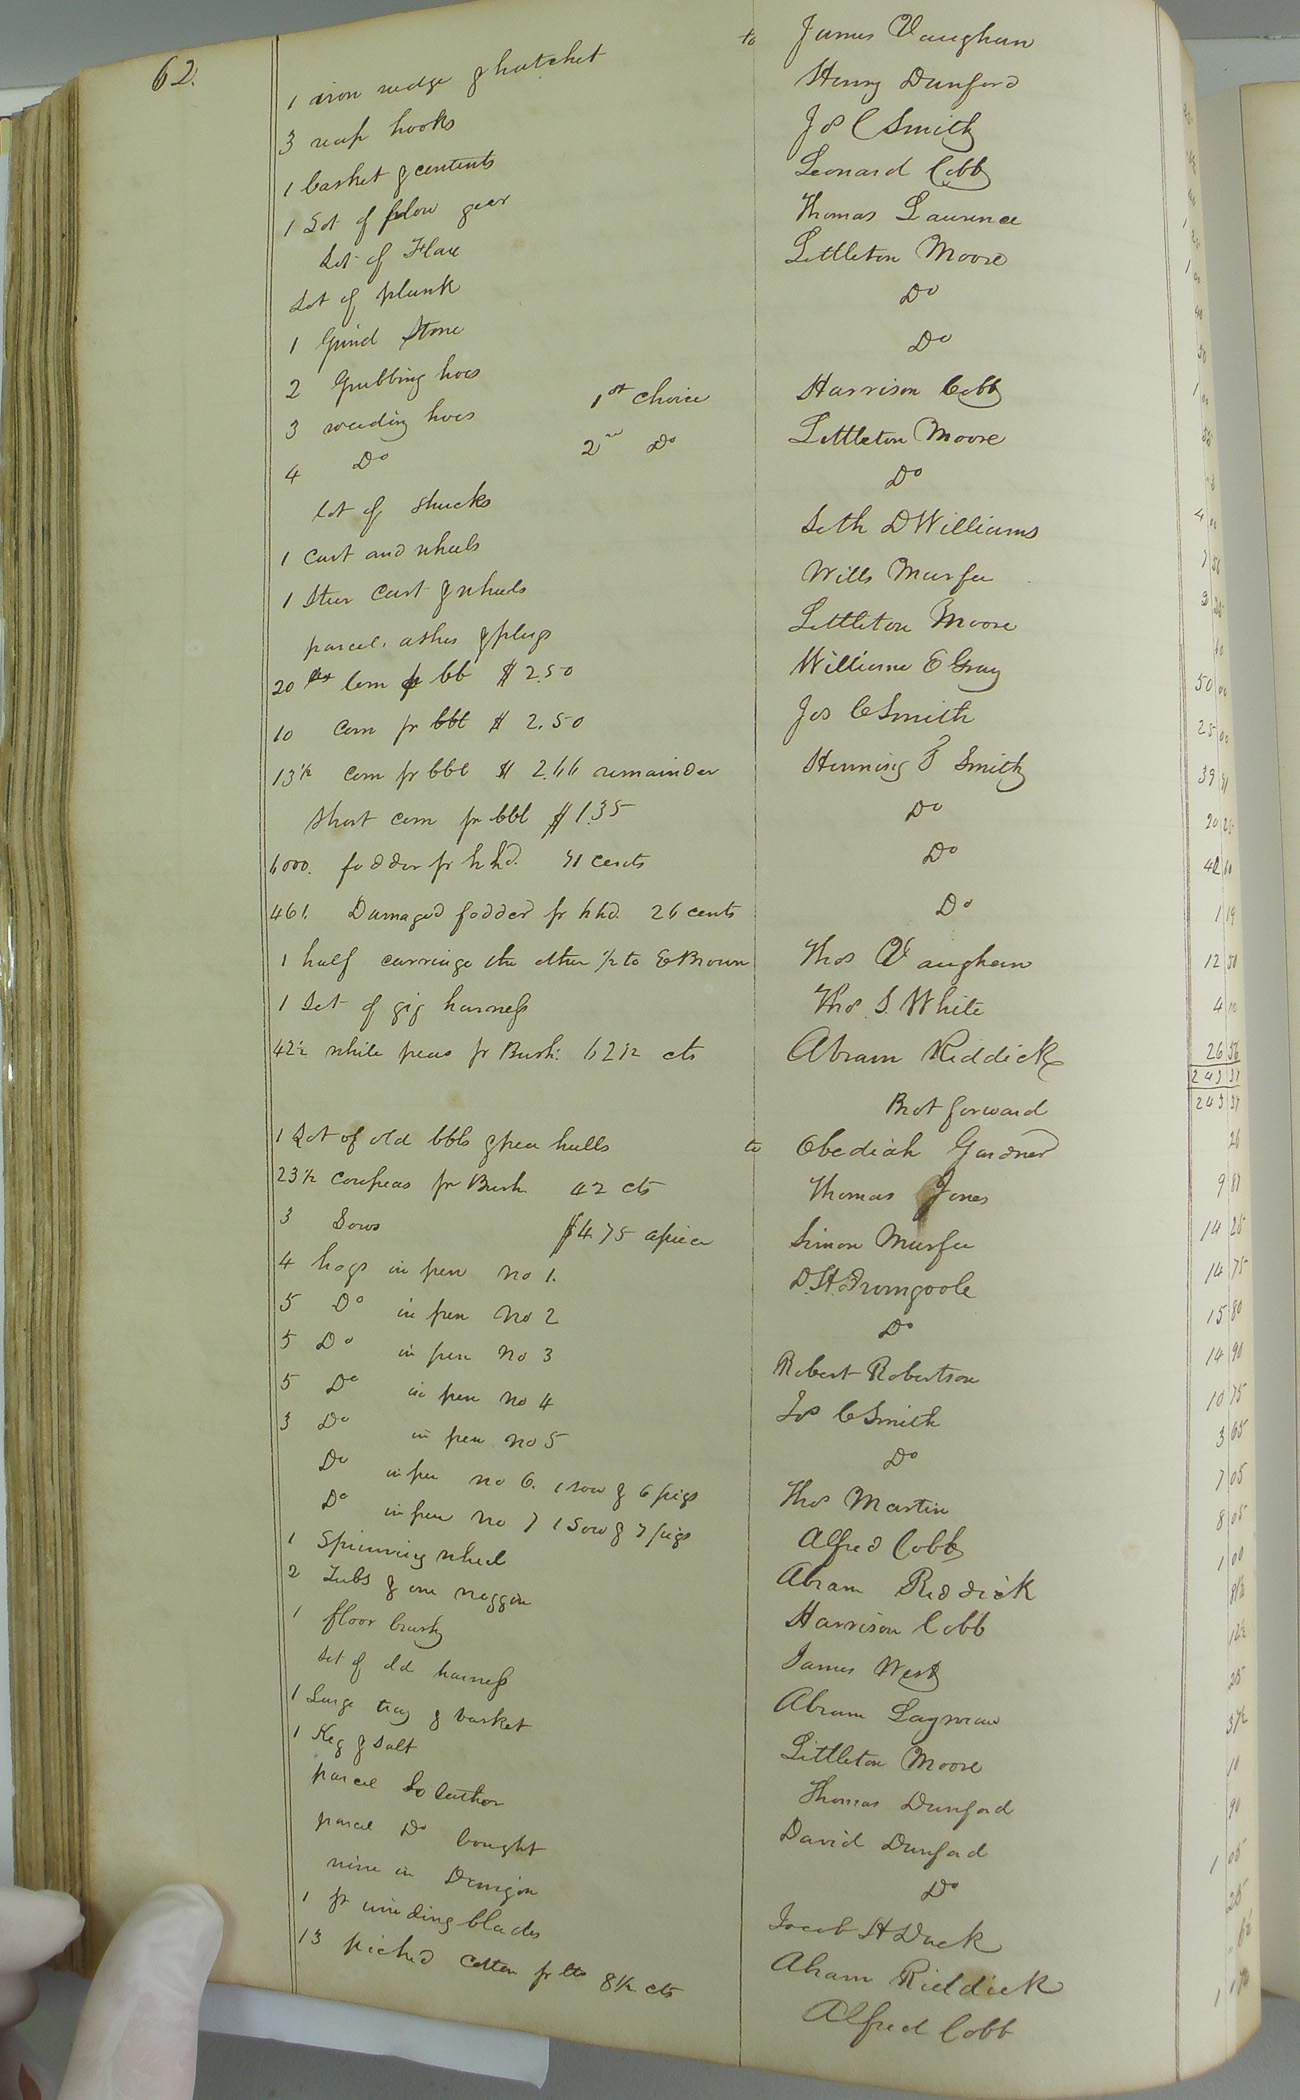 62.
1 iron wedge & hatchet to James Vaughan
3 reap hooks Henry Dunford
1 basket & contents Jos C Smith
1 Lot of plow gear Leonard Cobb
Lot of Flax Thomas Laurence
Lot of plank Littleton Moore
1 Grind Stone Do
2 Grubbing hoes Do
3 weeding hoes 1st choice Harrison Cobb
4 Do 2nd Do Littleton Moore
lot of shucks Do
1 Cart and wheels Seth D Williams 4
1 Steer Cart & wheels Wills Murfee
parcel ashes & plugs Littleton Moore
20 corn pr bbl $2.50 William E Gray 50 00
10 Corn pr bbl $ 2.50 Jos C Smith 25 00
13½ corn pr bbl $ 2.66 remainder Henning T Smith 39
Short corn pr bbl $1.35 Do 20 25
6000. fodder pr hhd. 71 cents Do 42 60
461. Damaged fodder pr hhd. 26 cents Do 1 19
1 half carriage the other ½ to E Brown Thos Vaughan 12 50
1 Set of gig harness Thos S. White 4
42½ white peas pr Bush: 62½ cts Abram Riddick 26 56
243 37
Brot forward 243 37
1 Lot of old bbls & pea hulls to Obediah Gardner 26
23½ cowpeas pr Bush 42 cts Thomas Jones 9 87
3 Sows $4.75 apiece Simon Murfee 14 25
4 hogs in pen no 1. D.H. Dromgoole 14 75
5 Do in pen No 2 Do 15 80
5 Do in pen No 3 Robert Robertson 14 90
5 Do in pen no 4 Jos C Smith 10 75
3 Do in pen no 5 Do 3 65
Do in pen no 6. 1 sow & 6 pigs Thos Martin 7 05
Do in pen No 7 1 Sow & 7 pigs Alfred Cobb 8 05
1 Spinning wheel Abram Riddick 1 00
2 Tubs & one noggin Harrison Cobb
1 floor brush James West 12½
Set of old harness Abram Layman 25
1 Large tray & basket Littleton Moore 37½
1 Keg & salt Thomas Dunford 10
parcel So leather David Dunford 90
parcel Do bought Do 1 05
mine in Jacob H Duck 25
1 pr winding blades Abram Riddick
13 picked cotton pr lb 8½ cts Alfred Cobb 1